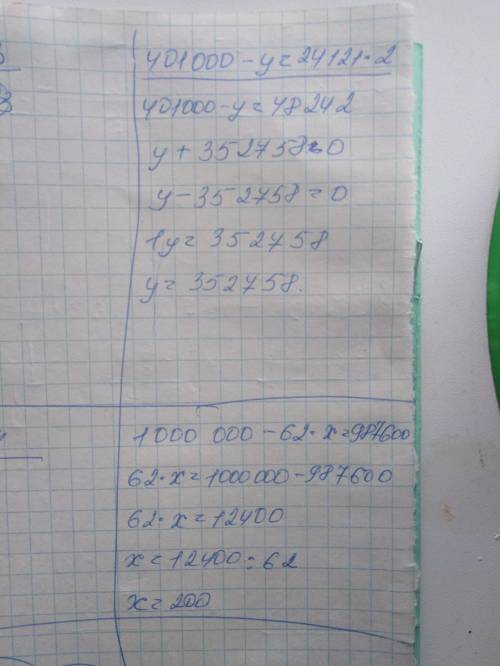 401000-y=24121·2
401000-y=48242
y+352758=0
y-352758=0
1y=352758
y=352758.
1000 000-62·x=987600
62·x=1000000-987600
62·x=12400
x=12400:62
x=200